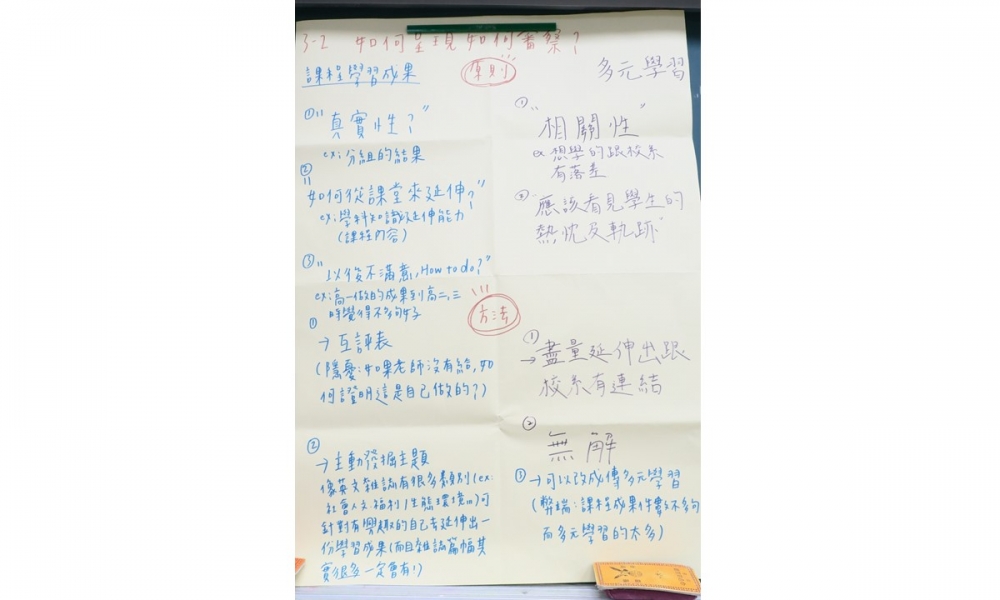 3-2 如何呈現如何審察?
課程學習成果
原則
多元學習
① "真實性?"
ex: 分組的結果
② "如何從課堂來延伸?"
ex: 學科知識延伸能力
(課程內容)
③ "以後不滿意, How to do?"
ex: 高一做的成果到高二、三
時覺得不夠好
① "相關性"
ex 想學的跟校系
有落差
② "應該看見學生的
熱忱及軌跡"
方法
① → 互評表
(隱憂: 如果老師沒有給, 如
何證明這是自己做的?)
② → 主動發掘主題
像英文雜誌有很多類別(ex:
社會人文福利/生態環境...)可
針對有興趣的自己去延伸出一
份學習成果(而且雜誌篇幅其
實很多一定會有!)
① → 盡量延伸出跟
校系有連結
② 無解
③ → 可以改成傳多元學習
(弊端: 課程成果件數不多夠
而多元學習的太多)